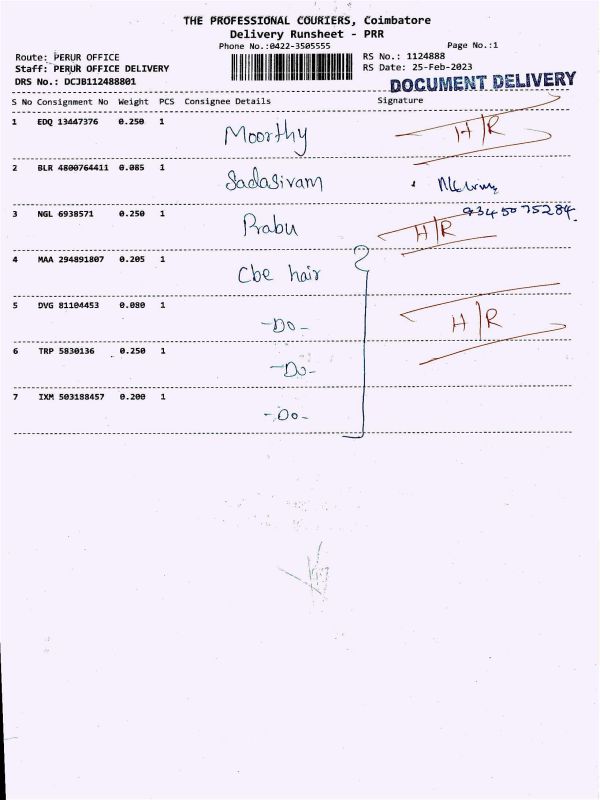 THE PROFESSIONAL COURIERS, Coimbatore
Delivery Runsheet - PRR
Phone No.:0422-3505555
Page No.:1
Route: PERUR OFFICE
RS No.: 1124888
Staff: PERUR OFFICE DELIVERY
RS Date: 25-Feb-2023
DRS No.: DCJB112488801
DOCUMENT DELIVERY
S No Consignment No Weight PCS Consignee Details Signature
1 EDQ 13447376 0.250 1 Moorthy H/R
2 BLR 4800764411 0.085 1 Sadasivam
9345075284
3 NGL 6938571 0.250 1 Prabu H/R
4 MAA 294891807 0.205 1 Cbe hair
5 DVG 81104453 0.080 1 -Do- H/R
6 TRP 5830136 0.250 1 -Do-
7 IXM 503188457 0.200 1 -Do-